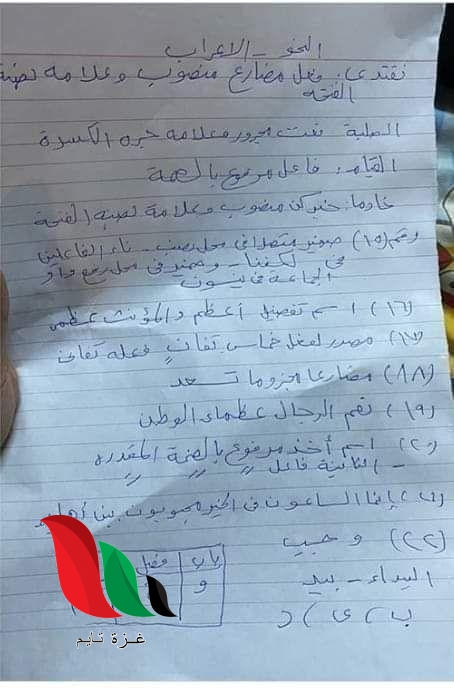 النحو - الاعراب
نقتدى: فعل مضارع منصوب وعلامة نصبة
الفتحة
الصلبة نعت مجرور وعلامة جره الكسرة
القيام: فاعل مرفوع بالضمة
خادما: خبر كن منصوب وعلامة نصبه الفتحة
رقم (١٥) ضمير متصل فى محل نصب - ناء الفاعلين
فى لكننا - وضمير فى محل رفع واو
الجماعة فى
(١٦) اسم تفضيل أعظم والمؤنث عظمى
(١٧) مصدر لفعل خماسى تفانٍ فعله تفانى
(١٨) مضارعا مجزوما تسعد
(١٩) نعم الرجال عظماء الوطن
(٢٠) اسم مرفوع بالضمة المقدره
- الثانية فاعل
(٢١) إنما الساعون فى الخير محبوبون بين
(٢٢) وجيب
باب فصل
و
البيداء - بيد
ب / ى / د
غزة تايم